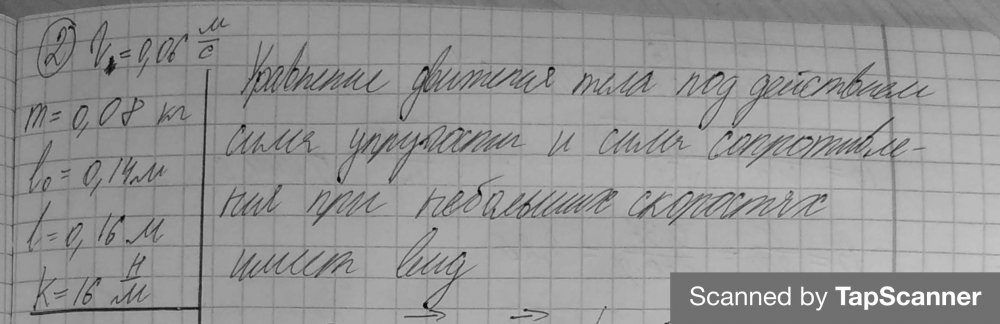 ② V₀ = 0,06 м/с
m = 0,08 кг
l₀ = 0,14 м
l = 0,16 м
K = 16 Н/м
Уравнение движения тела под действием
силы упругости и силы сопротивле-
ния при небольших скоростях
имеет вид
Scanned by TapScanner